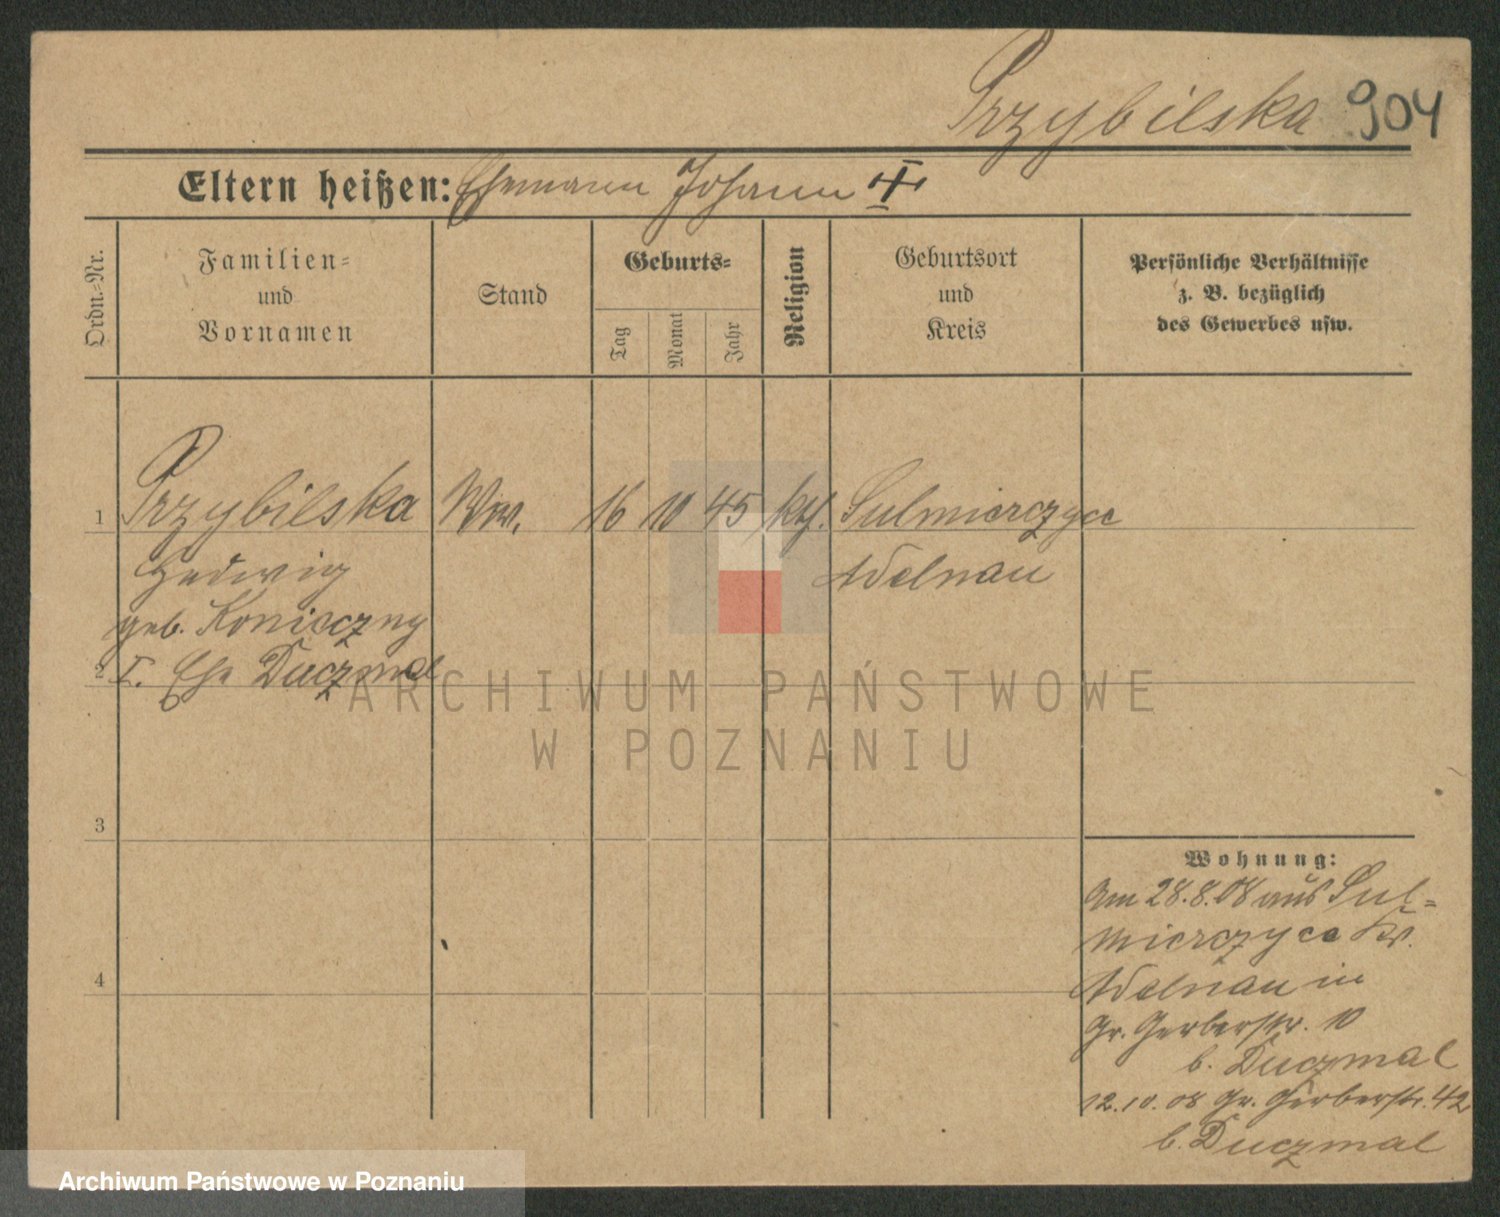 Przybilska 904
Eltern heißen: Ehemann Johann ‡
Ordn.-Nr.
Familien-
und
Vornamen
Stand
Geburts-
Tag
Monat
Jahr
Religion
Geburtsort
und
Kreis
Persönliche Verhältnisse
z. B. bezüglich
des Gewerbes usw.
1 Przybilska Ww. 16 10 45 kth. Sulmierzyce
Hedwig Adelnau
geb. Konieczny
2 I. Ehe Duczmal
3
4
ARCHIWUM PAŃSTWOWE
W POZNANIU
Wohnung:
Am 28.8.08 aus Sul-
mierczyce Kr.
Adelnau in
Gr. Gerberstr. 10
b. Duczmal
12.10.08 Gr. Gerberstr. 42
b. Duczmal
Archiwum Państwowe w Poznaniu